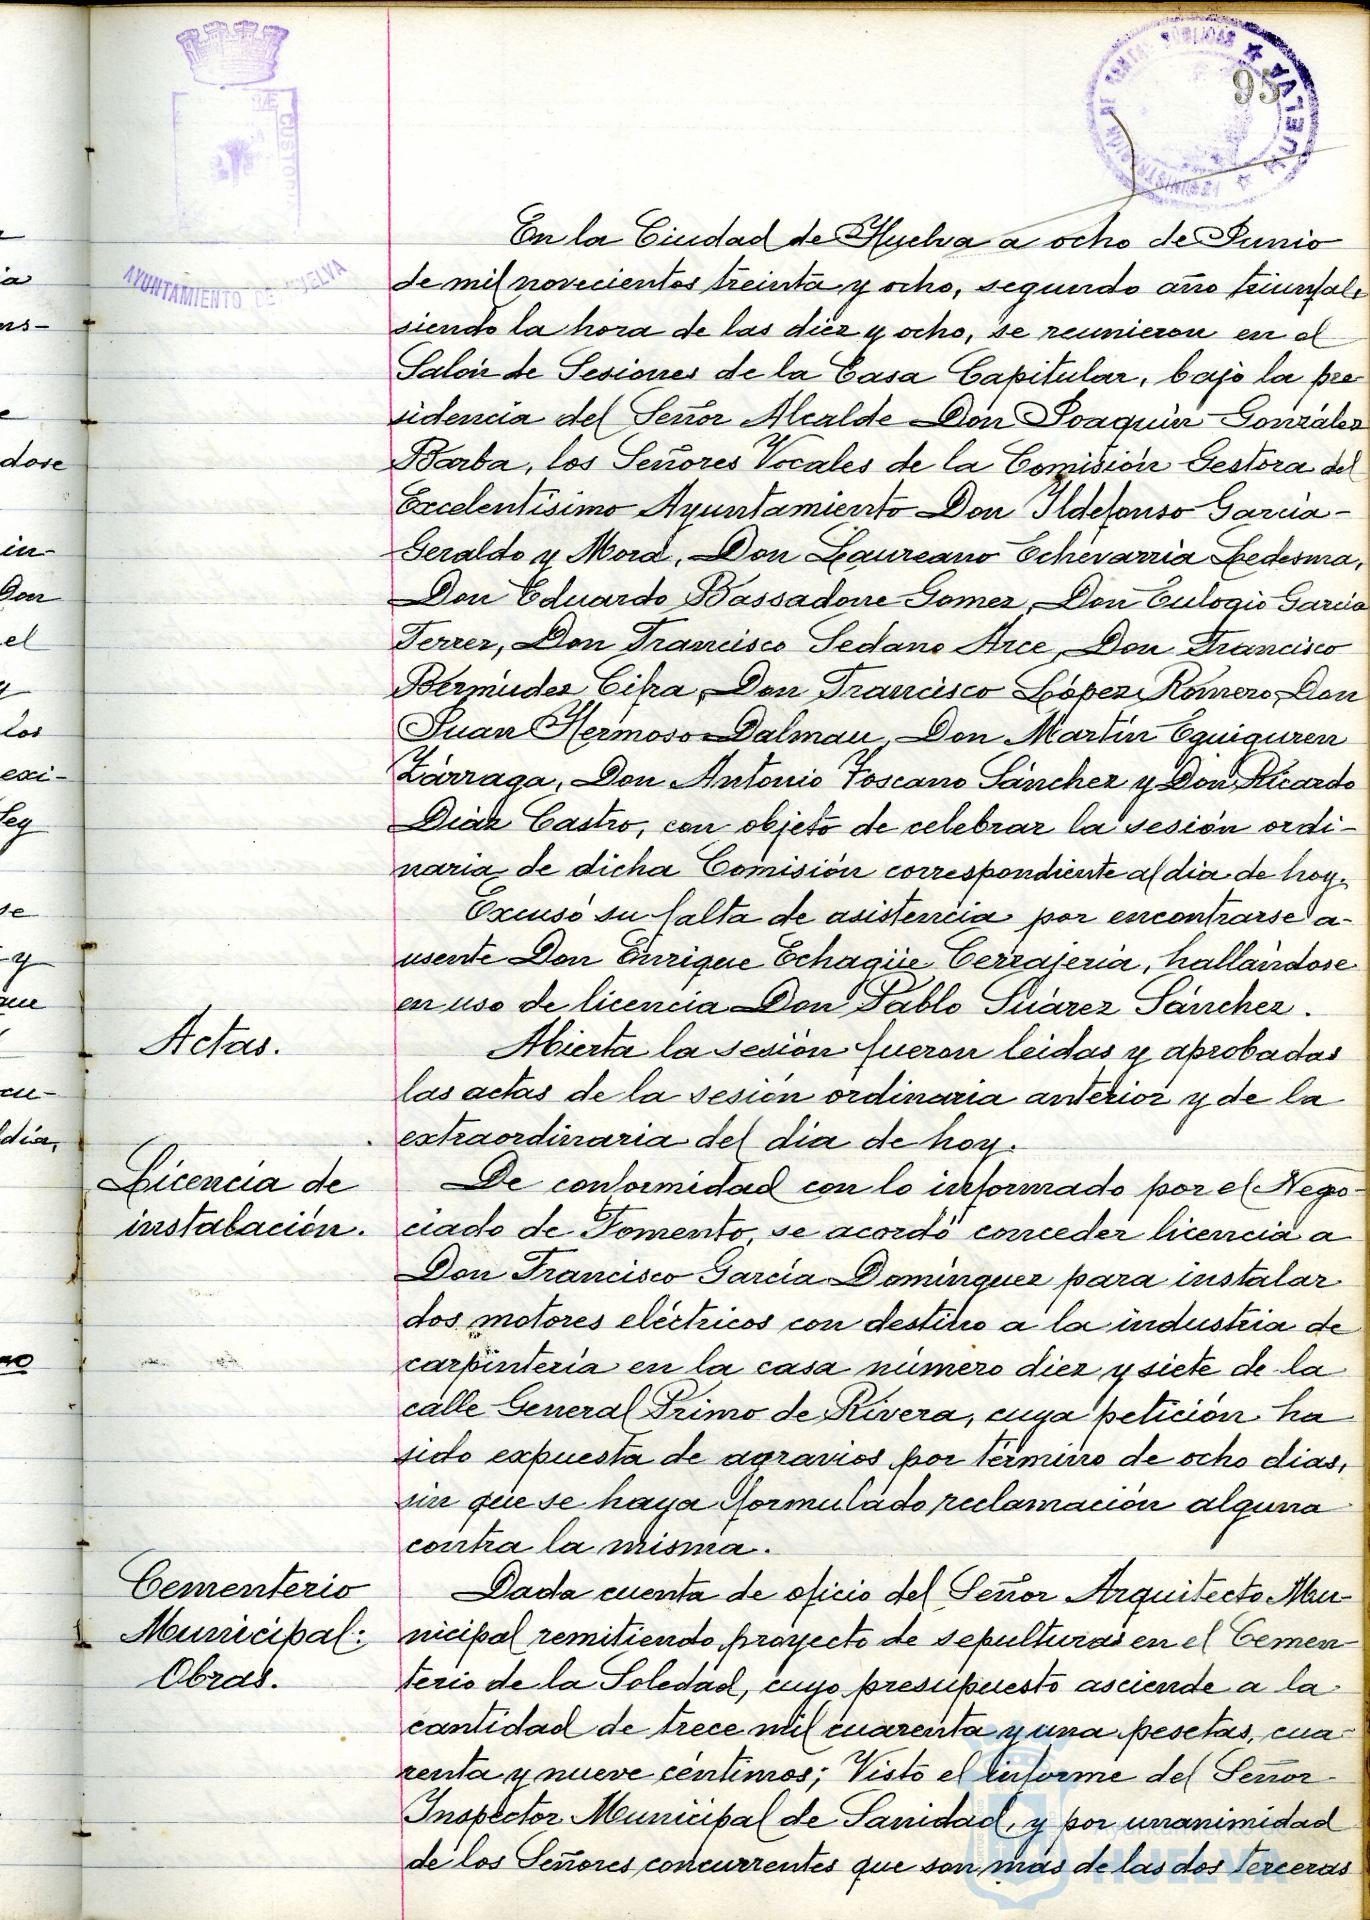 95
AYUNTAMIENTO DE HUELVA
HUELVA
En la Ciudad de Huelva a ocho de Junio
de mil novecientos treinta y ocho, segundo año triunfal,
siendo la hora de las diez y ocho, se reunieron en el
Salón de Sesiones de la Casa Capitular, bajo la pre
sidencia del Señor Alcalde Don Joaquín González
Barba, los Señores Vocales de la Comisión Gestora del
Excelentísimo Ayuntamiento Don Ildefonso García-
Geraldo y Mora, Don Laureano Echevarría Ledesma,
Don Eduardo Bassadone Gomez, Don Eulogio García
Ferrer, Don Francisco Sedano Arce, Don Francisco
Bermúdez Cifra, Don Francisco López Romero, Don
Juan Hermoso Dalmau, Don Martín Eguiguren
Zárraga, Don Antonio Toscano Sánchez y Don Ricardo
Díaz Castro, con objeto de celebrar la sesión ordi-
naria de dicha Comisión correspondiente al dia de hoy.
Excusó su falta de asistencia por encontrarse a-
usente Don Enrique Echagüe Cerrajería, hallándose
en uso de licencia Don Pablo Suárez Sánchez.
Actas.
Abierta la sesión fueron leidas y aprobadas
las actas de la sesión ordinaria anterior y de la
extraordinaria del dia de hoy.
Licencia de
instalación.
De conformidad con lo informado por el Nego-
ciado de Fomento, se acordó conceder licencia a
Don Francisco García Domínguez para instalar
dos motores eléctricos con destino a la industria de
carpintería en la casa número diez y siete de la
calle General Primo de Rivera, cuya petición ha
sido expuesta de agravios por término de ocho dias,
sin que se haya formulado reclamación alguna
contra la misma.
Cementerio
Municipal:
Obras.
Dada cuenta de oficio del Señor Arquitecto Mu-
nicipal remitiendo proyecto de sepulturas en el Cemen-
terio de la Soledad, cuyo presupuesto asciende a la
cantidad de trece mil cuarenta y una pesetas, cua-
renta y nueve céntimos; Visto el informe del Señor
Inspector Municipal de Sanidad, y por unanimidad
de los Señores concurrentes que son más de las dos terceras
HUELVA